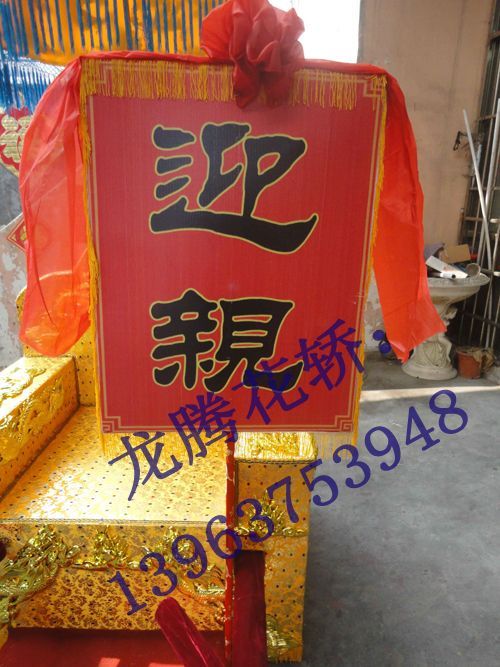 迎
親
龙腾花轿：
13963753948